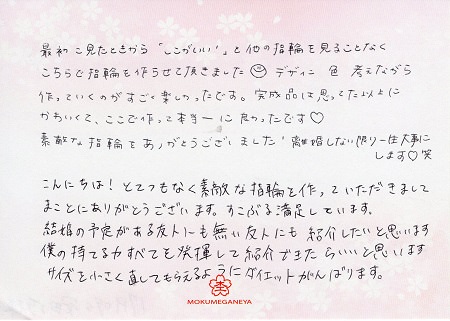 最初に見たときから「ここがいい」と他の指輪を見ることなく
こちらで指輪を作らせて頂きました デザイン 色 考えながら
作っていくのがすごく楽しかったです。完成品は思ってた以上に
かわいくて、ここで作って本当に良かったです♡
素敵な指輪をありがとうございました! 離婚しない限り一生大事に
します♡笑
こんにちは!とてつもなく素敵な指輪を作っていただきまして
まことにありがとうございます。すこぶる満足しています。
結婚の予定がある友人にも無い友人にも紹介したいと思います
僕の持てる力すべてを発揮して紹介できたらいいと思います
サイズを小さく直してもらえるようにダイエットがんばります。
MOKUMEGANEYA